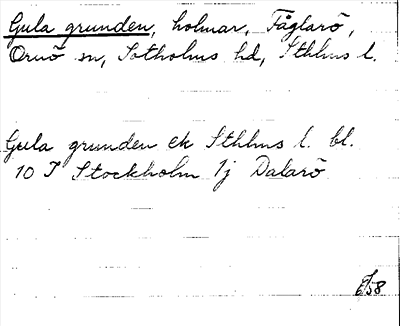 Gula grunden, holmar, Fåglarö,
Ornö sn, Sotholms hd, Sthlms l.
Gula grunden ek Sthlms l. bl.
10 I Stockholm 1j Dalarö
6/58